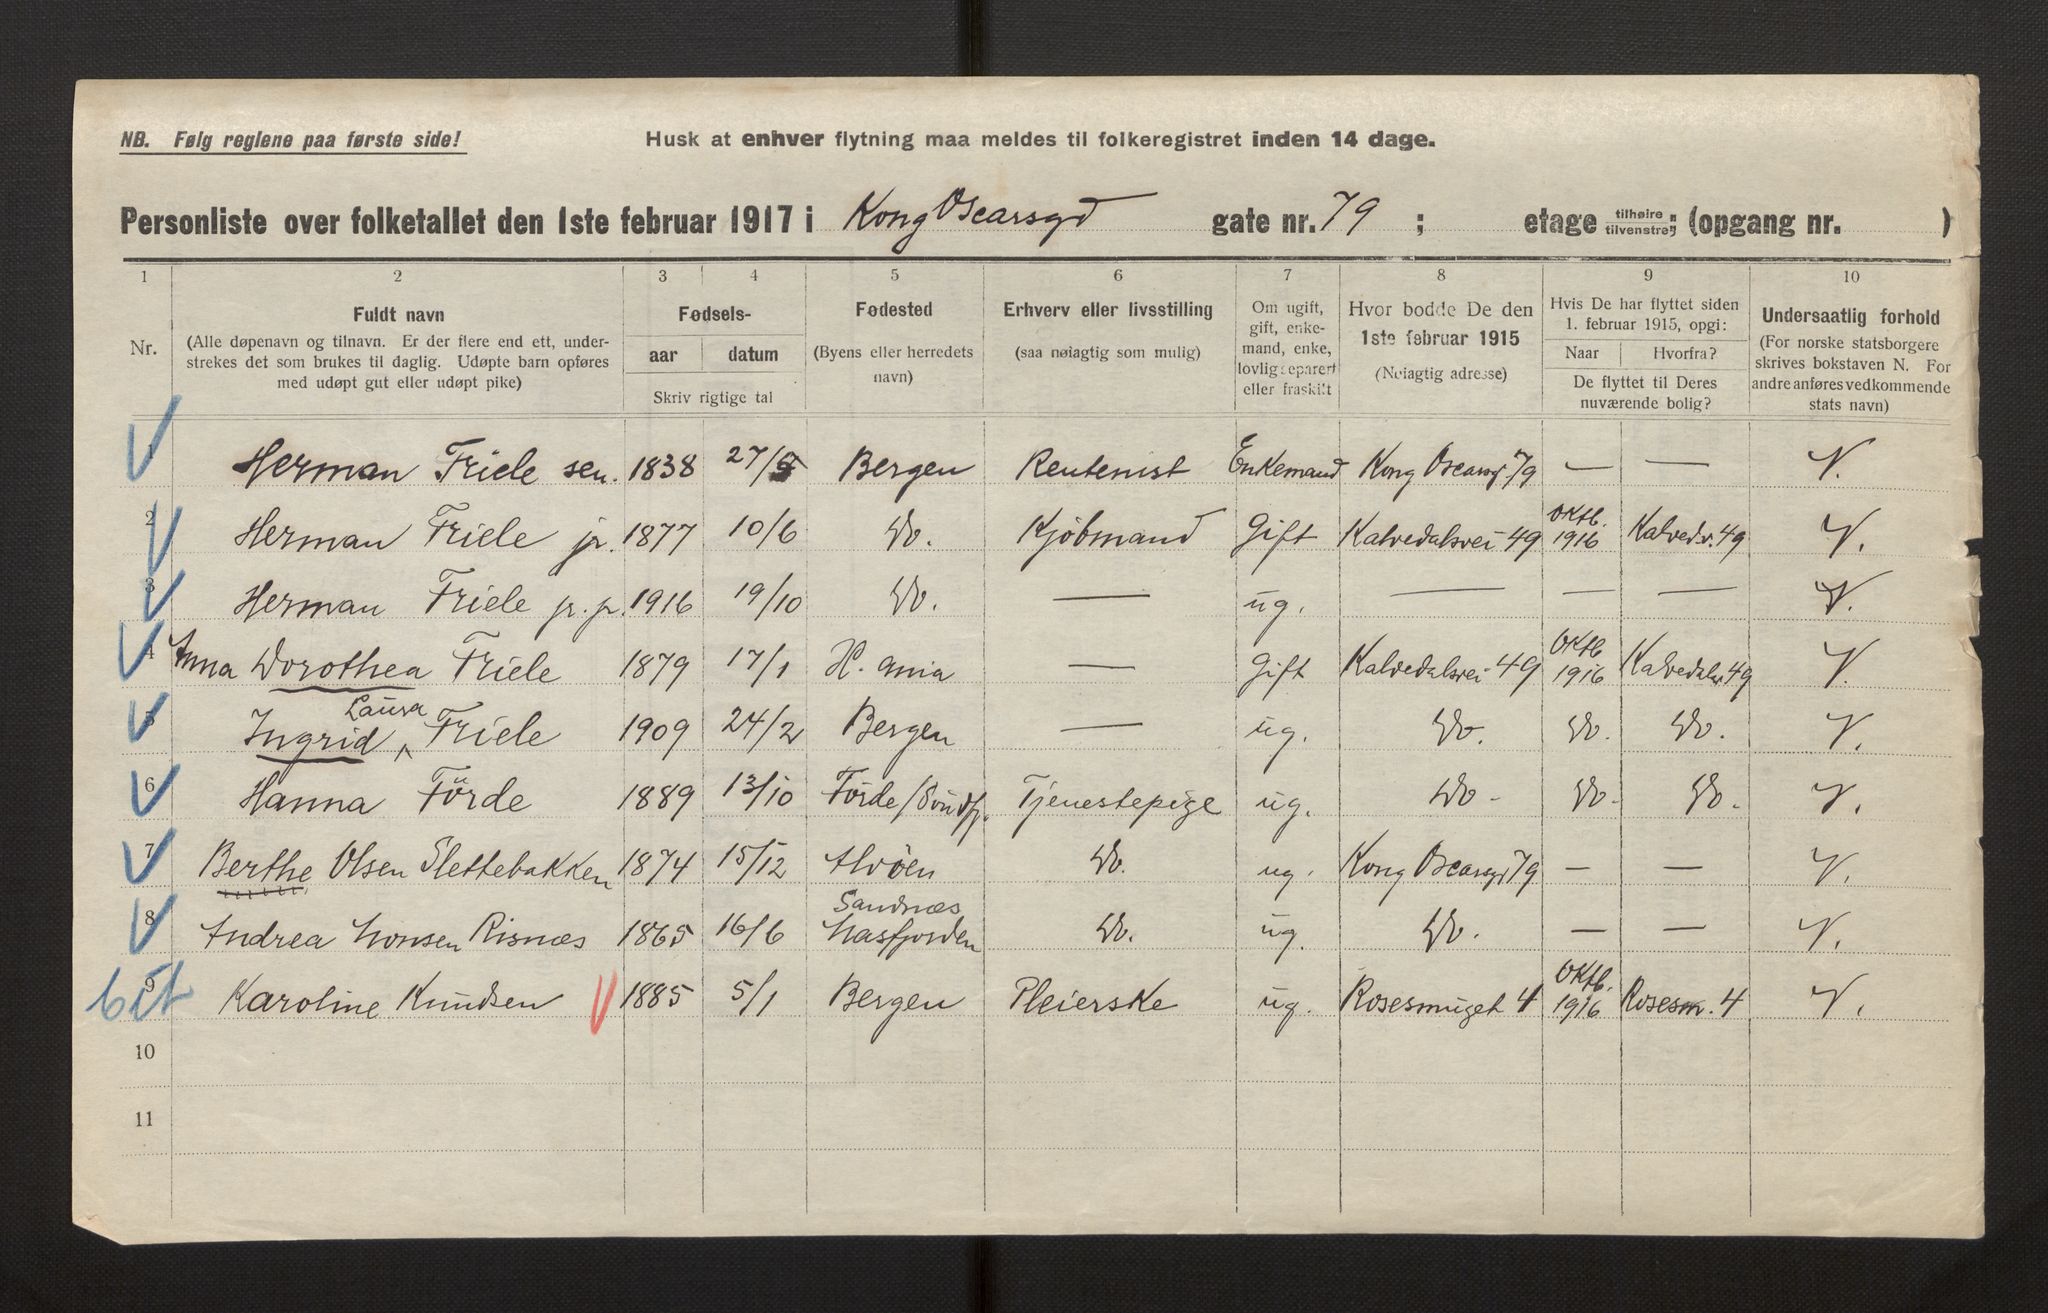 NB. Følg reglene paa første side!
Husk at enhver flytning maa meldes til folkeregistret inden 14 dage.
Personliste over folketallet den 1ste februar 1917 i Kong Oscarsgd gate nr. 79 ; etage tilhøire tilvenstre; (opgang nr. )
1 2 3 4 5 6 7 8 9 10
Nr.
Fuldt navn
(Alle døpenavn og tilnavn. Er der flere end ett, under-
strekes det som brukes til daglig. Udøpte barn opføres
med udøpt gut eller udøpt pike)
Fødsels-
aar datum
Skriv rigtige tal
Fødested
(Byens eller herredets
navn)
Erhverv eller livsstilling
(saa nøiagtig som mulig)
Om ugift,
gift, enke-
mand, enke,
lovlig separert
eller fraskilt
Hvor bodde De den
1ste februar 1915
(Nøiagtig adresse)
Hvis De har flyttet siden
1. februar 1915, opgi:
Naar Hvorfra?
De flyttet til Deres
nuværende bolig?
Undersaatlig forhold
(For norske statsborgere
skrives bokstaven N. For
andre anføres vedkommende
stats navn)
1 Herman Friele sen. 1838 27/ Bergen Rentenist Enkemand Kong Oscarsgd 79 — — N.
2 Herman Friele jr. 1877 10/6 Do. Kjöbmand Gift Kalvedalsvei 49 Oktb. 1916 Kalvedv. 49 N.
3 Herman Friele jr. jr. 1916 19/10 Do. — ug. — — — N.
4 Anna Dorothea Friele 1879 17/1 K. ania — Gift Kalvedalsvei 49 Oktb 1916 Kalvedalsv 49 N.
5 Ingrid Laura Friele 1909 24/2 Bergen — ug. Do. Do. Do. N.
6 Hanna Förde 1889 13/10 Förde/Söndfj. Tjenestepige ug. Do. Do. Do. N.
7 Berthe Olsen Slettebakken 1874 15/12 Alvöen Do. ug. Kong Oscarsgd 79 — — N.
8 Andrea Monsen Risnæs 1865 16/6 Sandnæs Masfjorden Do. ug. Do. — — N.
9 Karoline Knudsen 1885 5/1 Bergen Pleierske ug. Rosesmuget 4 Oktb. 1916 Rosesm. 4 N.
10
11